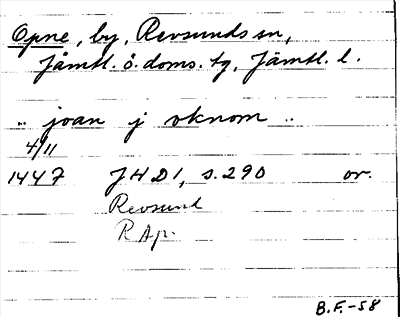 Opne, by, Revsunds sn,
Jämtl. ö. doms. tg, Jämtl. l.
.. joan j oknom ..
4/11
1447 JHD1, s. 290 or.
Revsund
R Ap.
B.F.-58